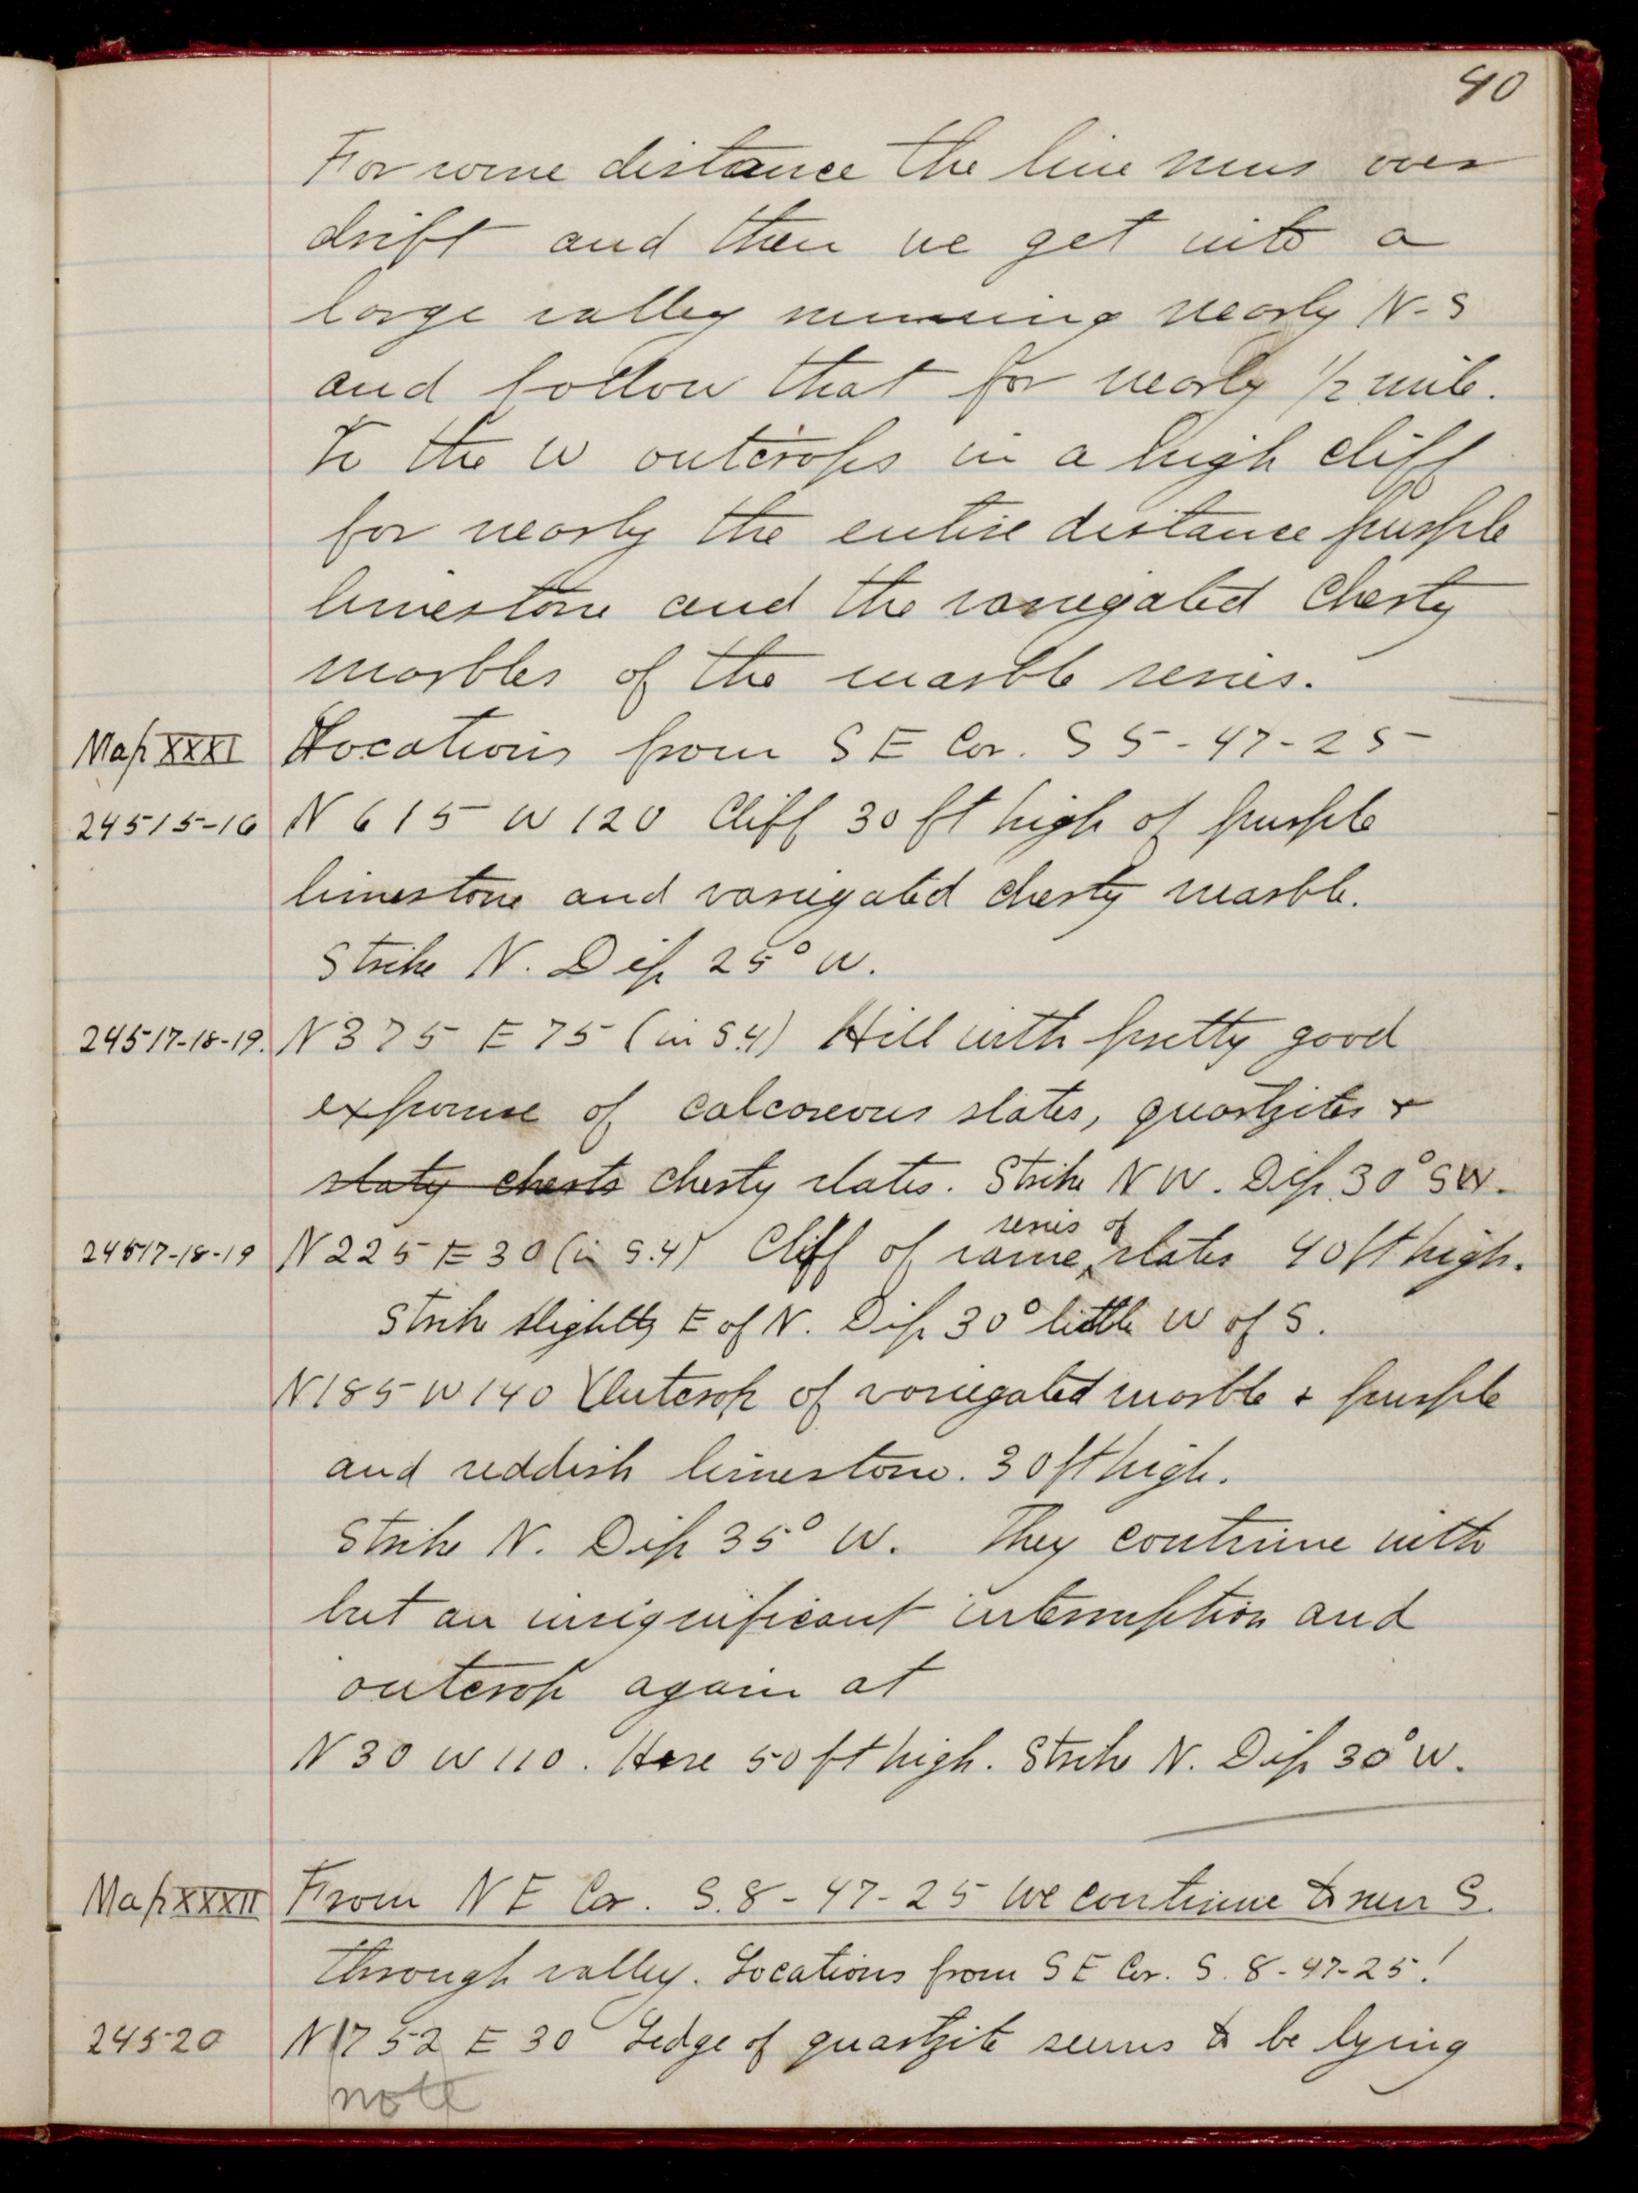 40
For some distance the line runs over
drift and then we get into a
large valley running nearly N-S
and follow that for nearly 1/2 mile.
To the W outcrops in a high cliff
for nearly the entire distance purple
limestone and the variegated Cherty
marbles of the marble series.
Map XXXI Locations from S E Cor. S 5-47-25
24515-16 N 615 W 120 Cliff 30 ft high of purple
limestone and variegated cherty marble.
Strike N. Dip 25° W.
24517-18-19. N 375 E 75 (in S.4) Hill with pretty good
exposure of calcareous slates, quartzites +
slaty cherts cherty slates. Strike NW. Dip 30° SW.
series of
24517-18-19 N 225 E 30 (in S.4) Cliff of same slates 40 ft high.
Strike slightly E of N. Dip 30° little W of S.
N185 W140 Outcrop of variegated marble + purple
and reddish limestone. 30 ft high.
Strike N. Dip 35° W. They continue with
but an insignificant interruption and
outcrop again at
N 30 W 110. Here 50 ft high. Strike N. Dip 30° W.
Map XXXII From N E Cor. S. 8-47-25 we continue to run S.
through valley. Locations from S E Cor. S. 8-47-25!
24520 N 1752 E 30 Ledge of quartzite seems to be lying
note